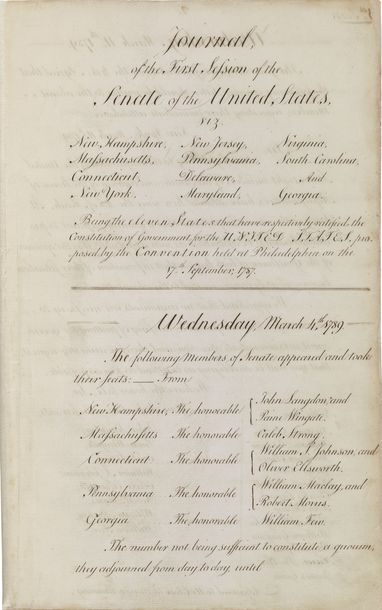 Journal
of the First Session of the
Senate of the United States,
viz.
New Hampshire, New Jersey, Virginia,
Massachusetts, Pennsylvania, South Carolina,
Connecticut, Delaware, And
New York. Maryland, Georgia.
Being the eleven States that have respectively ratified the
Constitution of Government for the UNITED STATES, pro-
posed by the Convention held at Philadelphia on the
17th September, 1787.
Wednesday, March 4th 1789
The following Members of Senate appeared and took
their seats: — From
New Hampshire, The honorable John Langdon and
Paine Wingate.
Massachusetts The honorable Caleb Strong.
Connecticut The honorable William S. Johnson, and
Oliver Ellsworth.
Pennsylvania The honorable William Maclay, and
Robert Morris.
Georgia The honorable William Few.
The number not being sufficient to constitute a quorum,
they adjourned from day to day, until